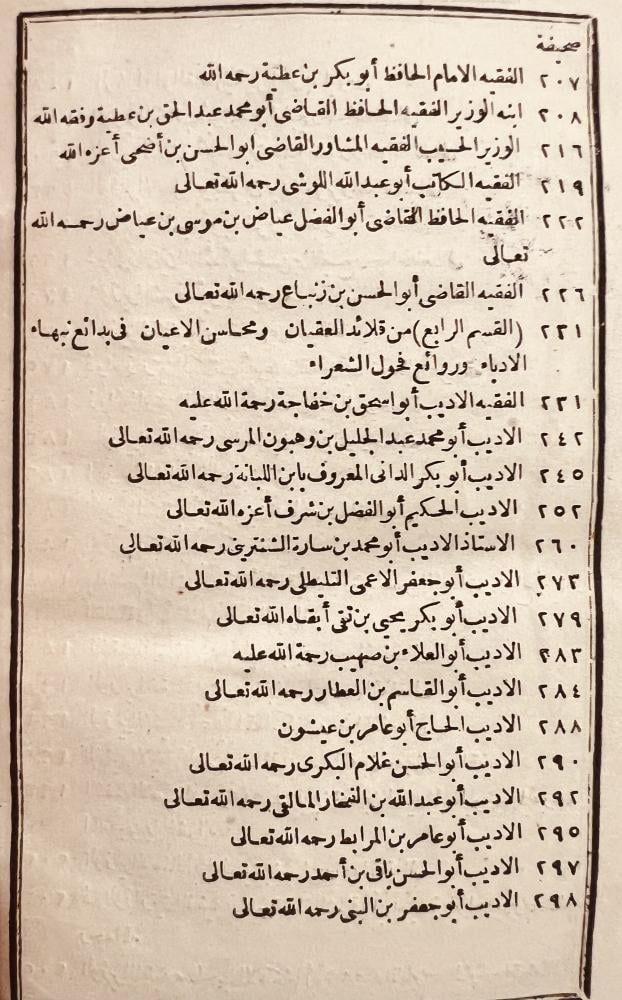 صحيفة
٢٠٧ الفقيه الامام الحافظ أبو بكر بن عطية رحمه الله
٢٠٨ ابنه الوزير الفقيه الحافظ القاضى أبو محمد عبد الحق بن عطية وفقه الله
٢١٦ الوزير الحسيب الفقيه المشاور القاضى ابو الحسن بن أضحى أعزه الله
٢١٩ الفقيه الكاتب أبو عبد الله اللوشى رحمه الله تعالى
٢٢٢ الفقيه الحافظ القاضى أبو الفضل عياض بن موسى بن عياض رحمه الله
تعالى
٢٢٦ الفقيه القاضى أبو الحسن بن زنباع رحمه الله تعالى
٢٣١ (القسم الرابع) من قلائد العقيان ومحاسن الاعيان فى بدائع نبهاء
الادباء وروائع فحول الشعراء
٢٣١ الفقيه الاديب أبو اسحق بن خفاجة رحمة الله عليه
٢٤٢ الاديب أبو محمد عبد الجليل بن وهبون المرسى رحمه الله تعالى
٢٤٥ الاديب أبو بكر الدانى المعروف بابن اللبانة رحمه الله تعالى
٢٥٢ الاديب الحكيم أبو الفضل بن شرف أعزه الله تعالى
٢٦٠ الاستاذ الاديب أبو محمد بن سارة الشنترينى رحمه الله تعالى
٢٧٣ الاديب أبو جعفر الاعمى التليطلى رحمه الله تعالى
٢٧٩ الاديب أبو بكر يحيى بن تقى أبقاه الله تعالى
٢٨٣ الاديب أبو العلاء بن صهيب رحمة الله عليه
٢٨٤ الاديب أبو القاسم بن العطار رحمه الله تعالى
٢٨٨ الاديب الحاج أبو عامر بن عيشون
٢٩٠ الاديب أبو الحسن غلام البكرى رحمه الله تعالى
٢٩٢ الاديب أبو عبد الله بن الفخار المالقى رحمه الله تعالى
٢٩٥ الاديب أبو عامر بن المرابط رحمه الله تعالى
٢٩٧ الاديب أبو الحسن باقى بن أحمد رحمه الله تعالى
٢٩٨ الاديب أبو جعفر بن البنى رحمه الله تعالى